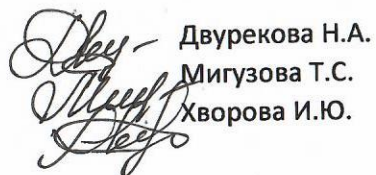 Двурекова Н.А.
Мигузова Т.С.
Хворова И.Ю.